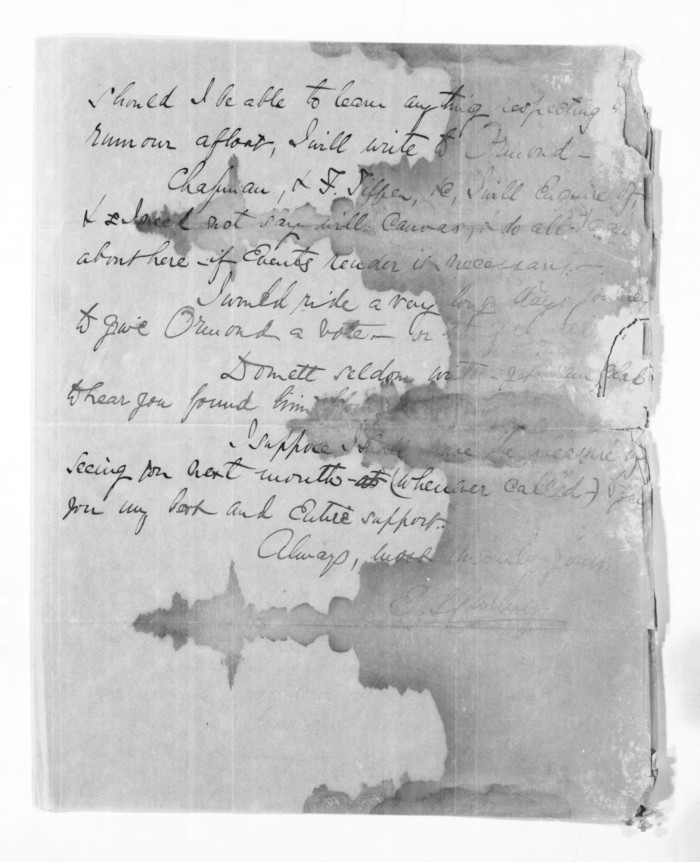 should I be able to learn anything respecting
rumour afloat, I will write to Ormond –
Chapman, & F. Tiffen, &c, I will Enquire of,
& I need not say will Canvas, & do all I can
about here – if Events render it necessary. –
I would ride a very long days journey
to give Ormond a vote – or
Domett seldom
to hear you found him
I suppose I shall have the pleasure of
seeing you next month – (whenever called)
you my best and Entire support.
Always, most sincerely yours